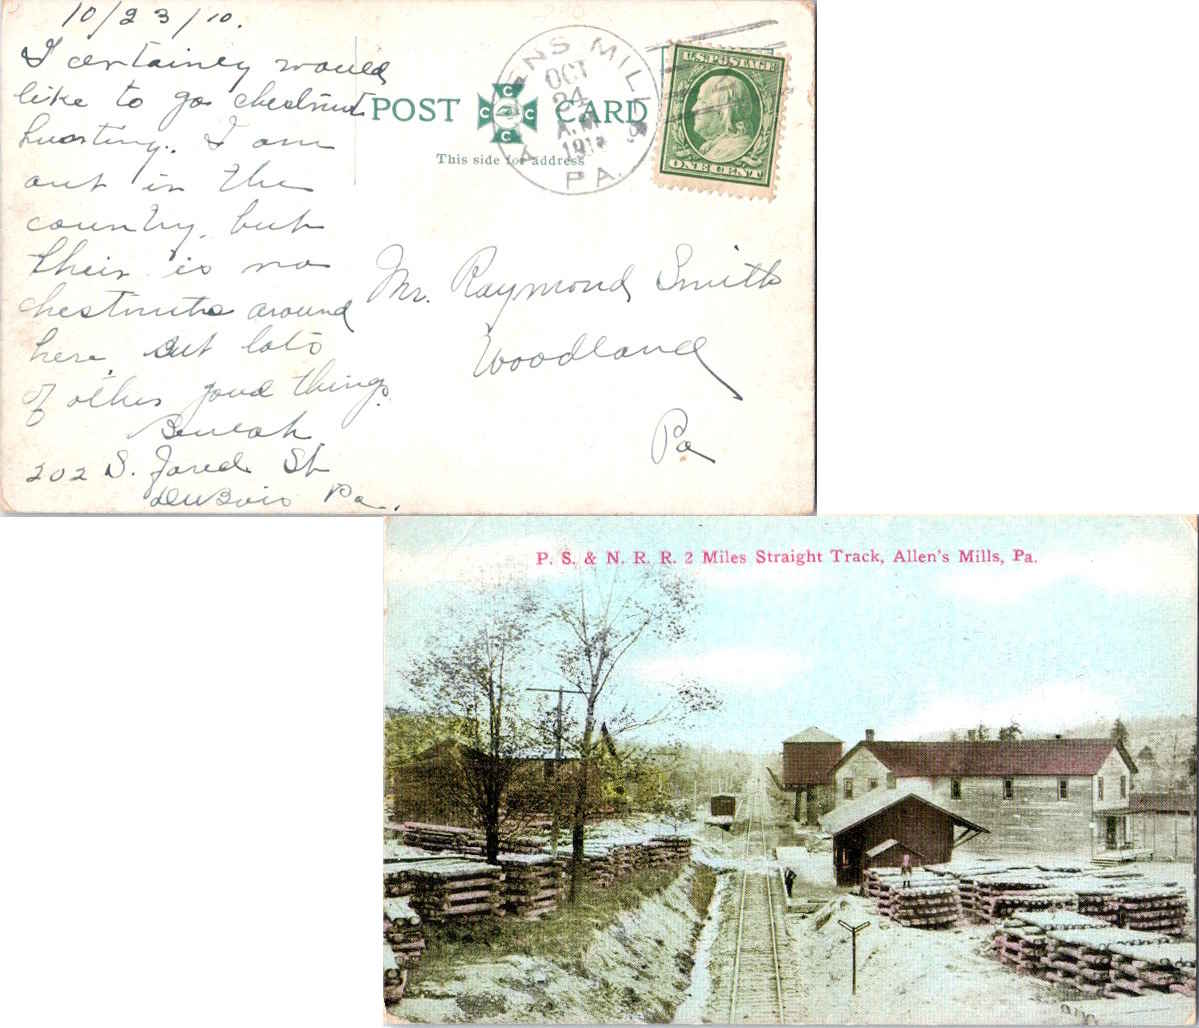 10/23/10.
I certainley would
like to go chestnut
hunting. I am
out in the
country, but
their is no
chestnuts around
here, but lots
of other good things.
Beulah
202 S. Jared St
DuBois Pa.
POST CARD
C C C C
This side for address
ALLENS MILLS
OCT
24
A.M.
1910
PA.
U.S. POSTAGE
ONE CENT
Mr. Raymond Smith
Woodland
Pa
P. S. & N. R. R. 2 Miles Straight Track, Allen's Mills, Pa.